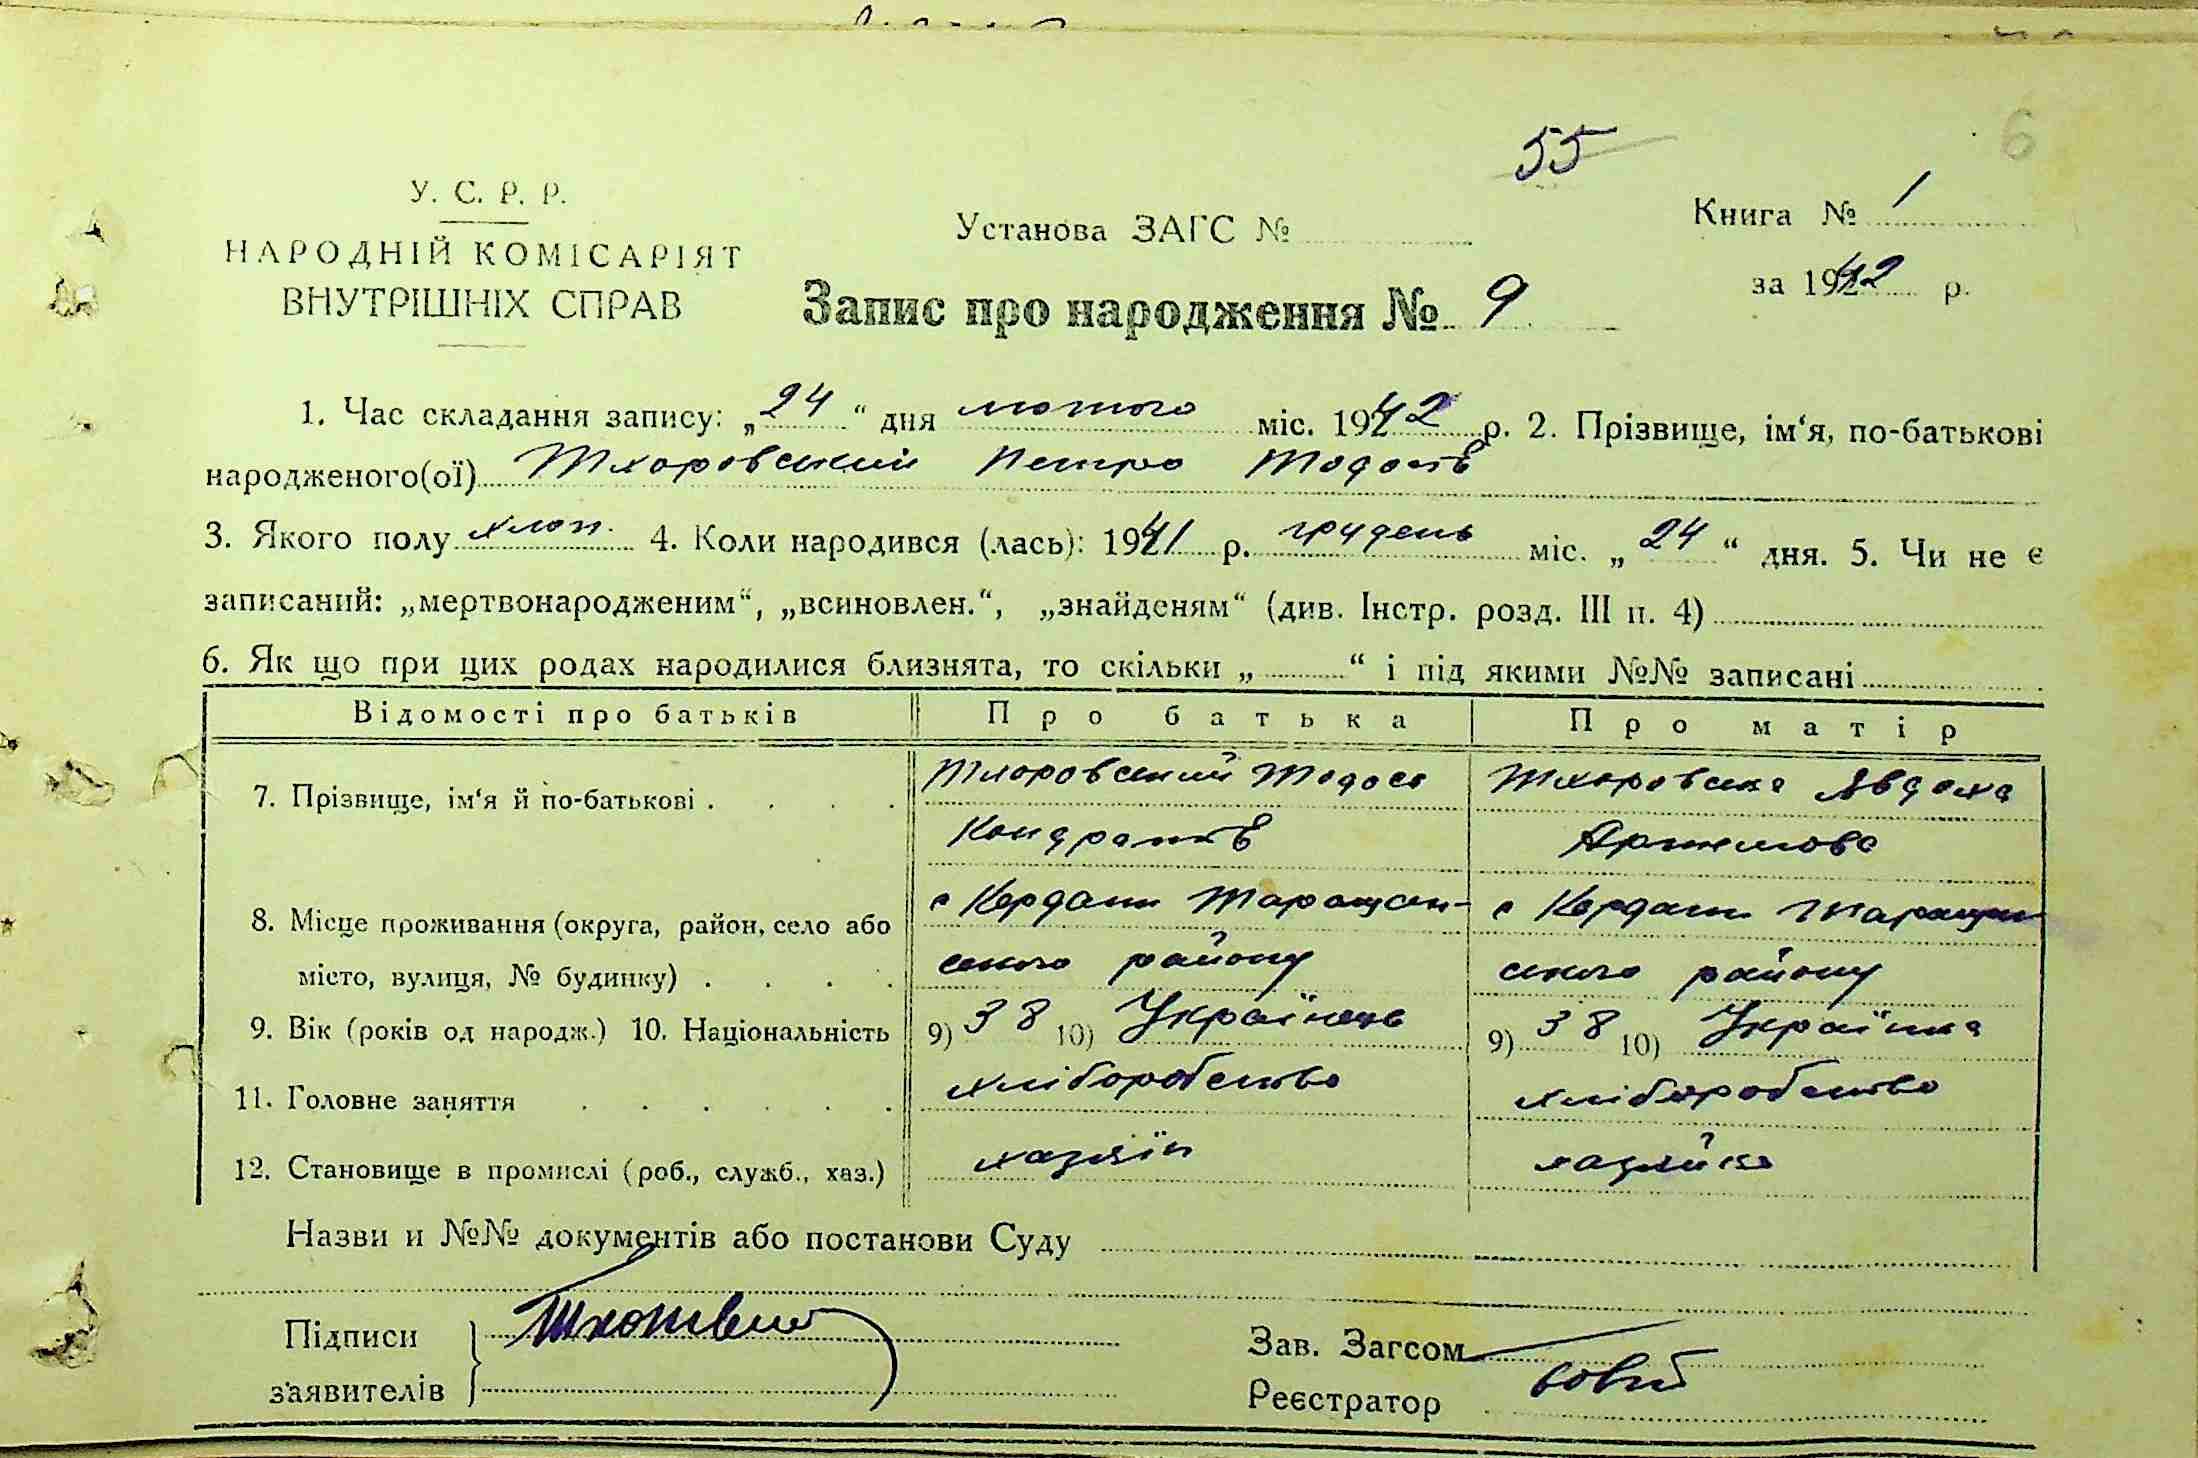 55
6
У. С. Р. Р.
НАРОДНІЙ КОМІСАРІЯТ
ВНУТРІШНІХ СПРАВ
Установа ЗАГС №
Книга № 1
за 1942 р.
Запис про народження № 9
1. Час складання запису: „24“ дня лютого міс. 1942 р. 2. Прізвище, ім‘я, по-батькові
народженого(ої) Тхоровський Петро Тодосів
3. Якого полу хлоп. 4. Коли народився (лась): 1941 р. грудень міс. „24“ дня. 5. Чи не є
записаний: „мертвонародженим“, „всиновлен.“, „знайденям“ (див. Інстр. розд. III п. 4)
6. Як що при цих родах народилися близнята, то скільки „ “ і під якими №№ записані
Відомості про батьків Про батька Про матір
7. Прізвище, ім‘я й по-батькові . . . . Тхоровський Тодос Тхоровська Явдоха
Кондратів Артемова
8. Місце проживання (округа, район, село або с Кердани Таращан- с Кердани Таращан
місто, вулиця, № будинку) . . . . ського району ського району
9. Вік (років од народж.) 10. Національність 9) 38 10) Українець 9) 38 10) Українка
11. Головне заняття . . . . . . хліборобство хліборобство
12. Становище в промислі (роб., служб., хаз.) хазяїн хазяйка
Назви и №№ документів або постанови Суду
Підписи
заявителів
Зав. Загсом
Реєстратор